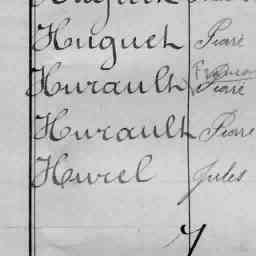 Huguet Pierre
Hurault François Pierre
Hurault Pierre
Hurel Jules
7